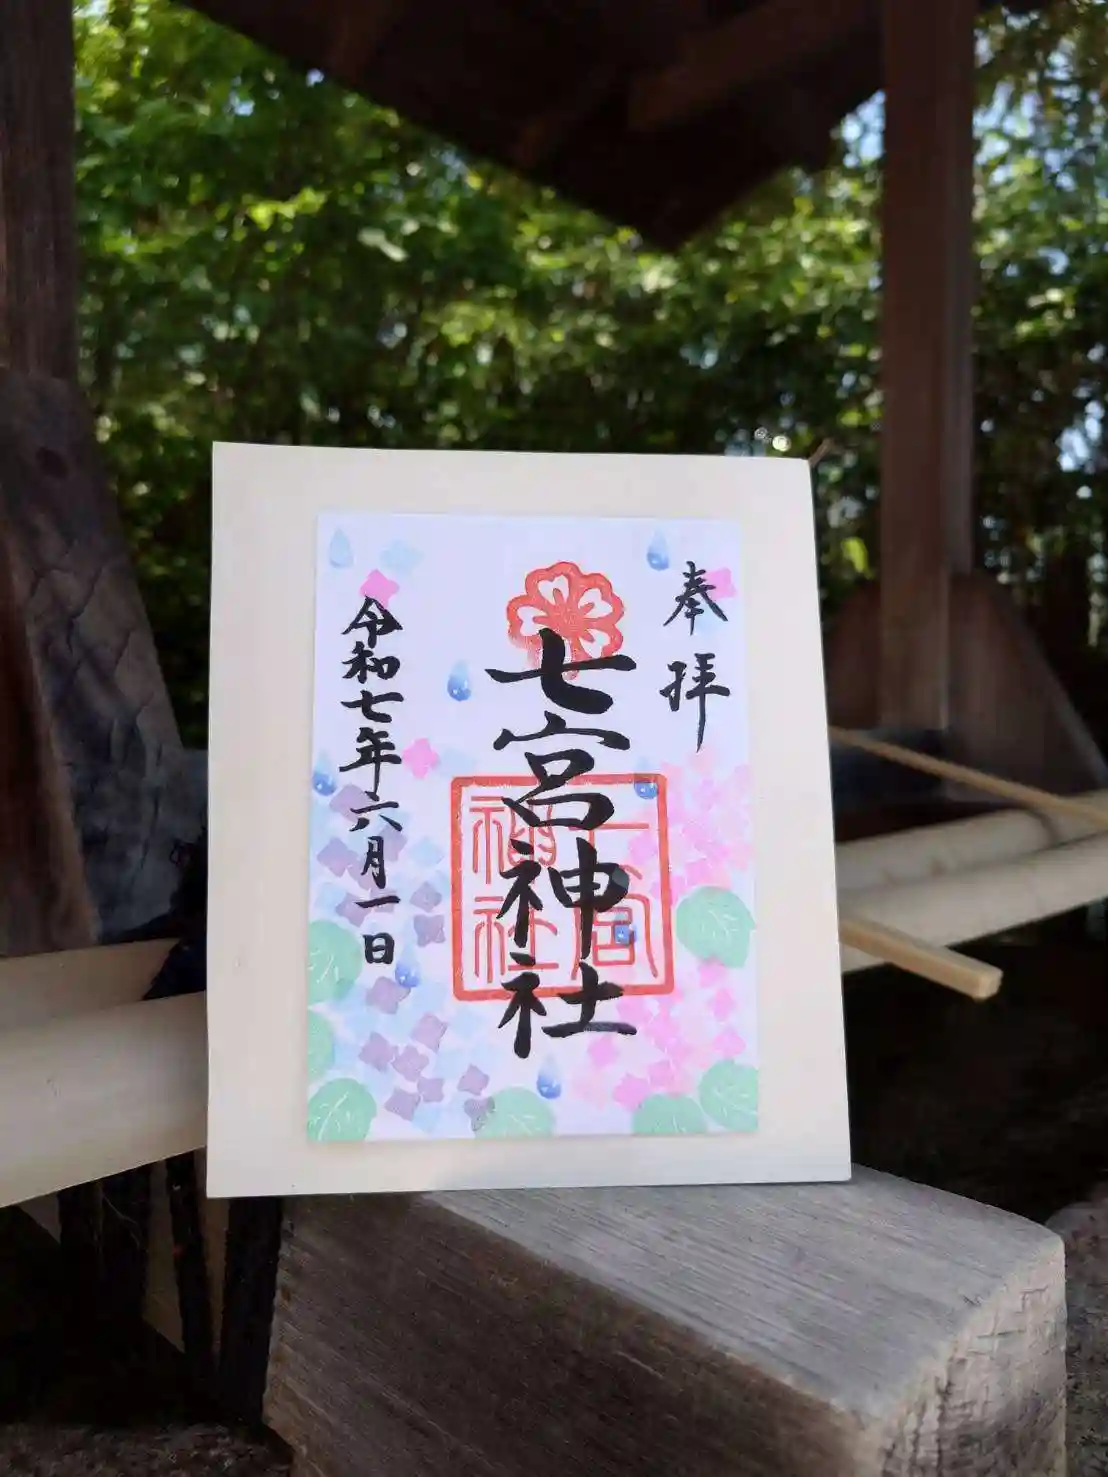 奉拝
七宮神社
七宮
神社
令和七年六月一日